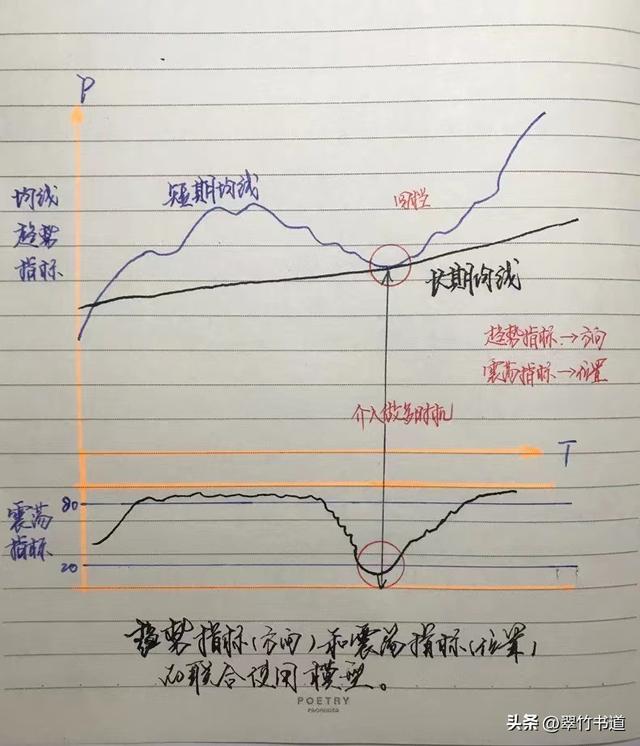 P
均线
趋势
指标
短期均线
回档
长期均线
趋势指标→方向
震荡指标→位置
介入做多时机
T
震荡
指标
80
20
趋势指标(方向)和震荡指标(位置)
的联合使用模型。
POETRY
头条 @翠竹书道